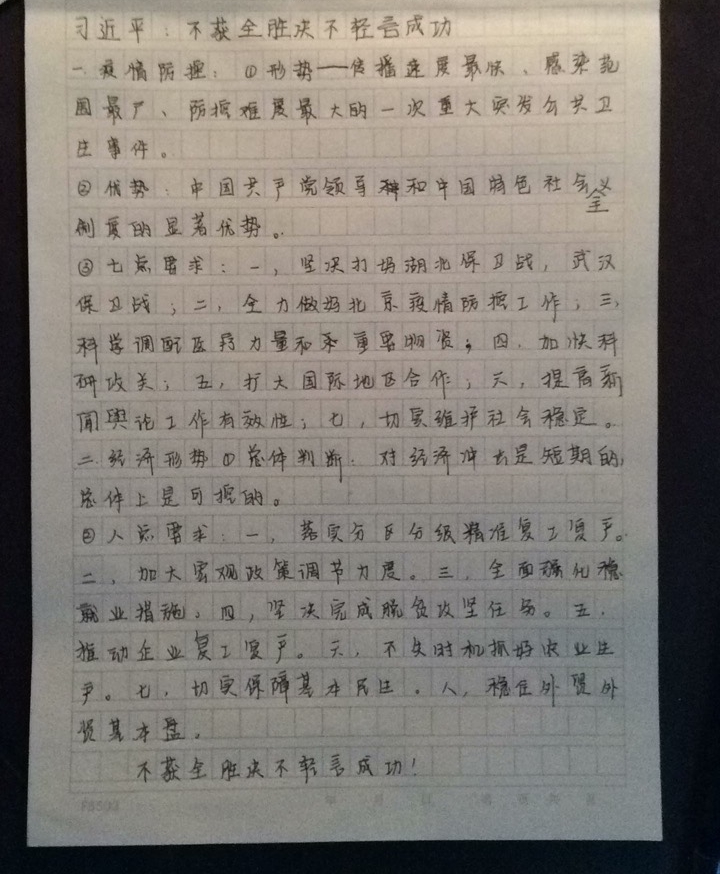 习近平：不获全胜决不轻言成功
一.疫情防控：①形势——传播速度最快、感染范
围最广、防控难度最大的一次重大突发公共卫
生事件。
②优势：中国共产党领导和中国特色社会主义
制度的显著优势。
③七点要求：一，坚决打好湖北保卫战，武汉
保卫战；二，全力做好北京疫情防控工作；三，
科学调配医疗力量和重要物资；四，加快科
研攻关；五，扩大国际地区合作；六，提高新
闻舆论工作有效性；七，切实维护社会稳定。
二.经济形势①总体判断：对经济冲击是短期的，
总体上是可控的。
②八点要求：一，落实分区分级精准复工复产。
二，加大宏观政策调节力度。三，全面强化稳
就业措施。四，坚决完成脱贫攻坚任务。五，
推动企业复工复产。六，不失时机抓好农业生
产。七，切实保障基本民生。八，稳住外贸外
资基本盘。
不获全胜决不轻言成功！